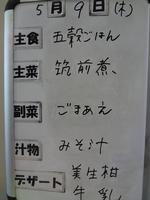 5月9日(木)
主食 五穀ごはん
主菜 筑前煮、
副菜 ごまあえ
汁物 みそ汁
デザート 美生柑
牛乳